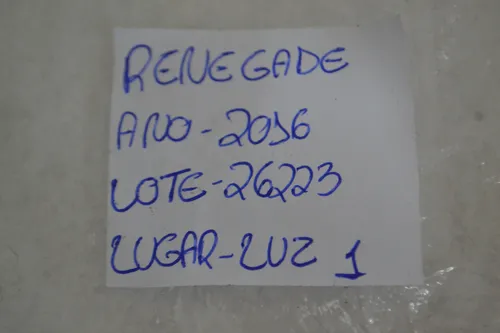 RENEGADE
ANO-2016
LOTE-26223
LUGAR-LUZ 1